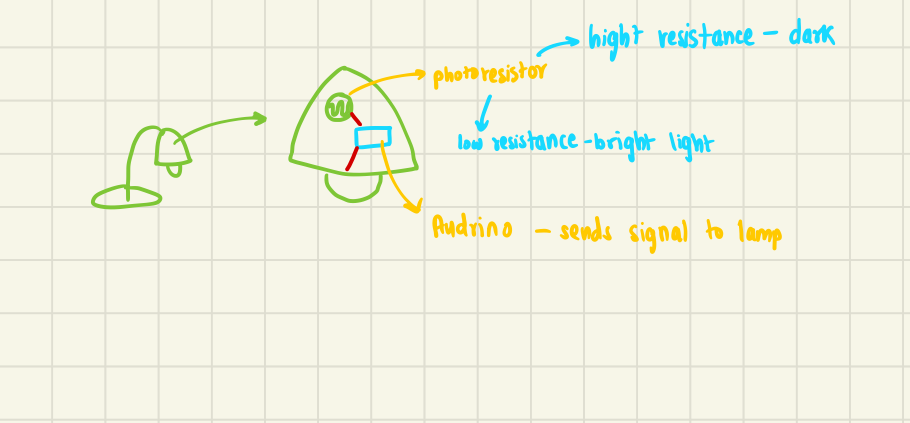 hight resistance - dark
photoresistor
low resistance - bright light
Audrino - sends signal to lamp